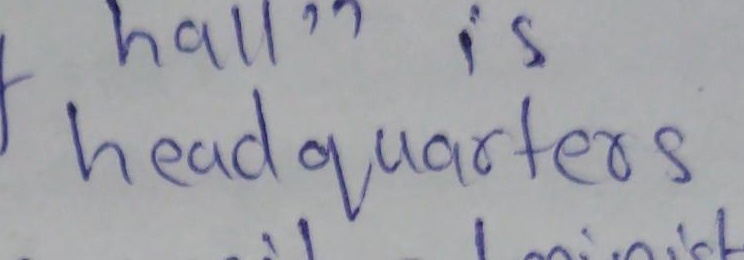 hall” is
headquarters